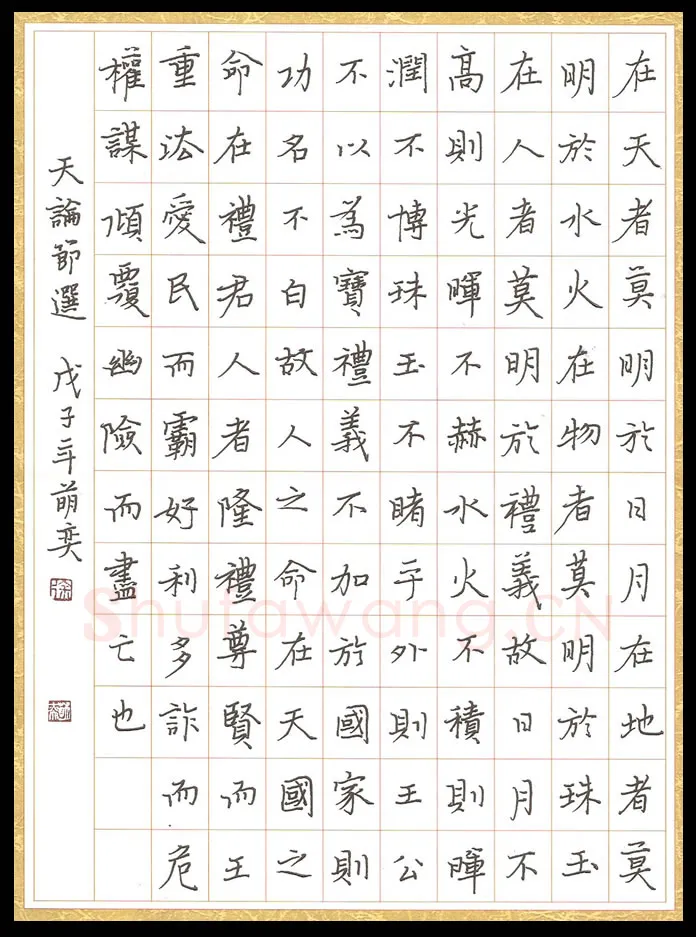 在天者莫明於日月在地者莫
明於水火在物者莫明於珠玉
在人者莫明於禮義故日月不
高則光暉不赫水火不積則暉
潤不博珠玉不睹乎外則王公
不以為寶禮義不加於國家則
功名不白故人之命在天國之
命在禮君人者隆禮尊賢而王
重法愛民而霸好利多詐而危
權謀傾覆幽險而盡亡也
天論節選 戊子年萌奕
Shufawang.CN